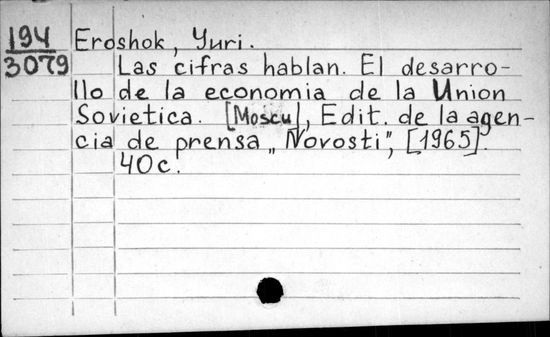 194 Eroshok, Yuri.
3079 Las cifras hablan. El desarro-
llo de la economia de la Union
Sovietica. [Moscu], Edit. de la agen-
cia de prensa „Novosti”, [1965].
40c.